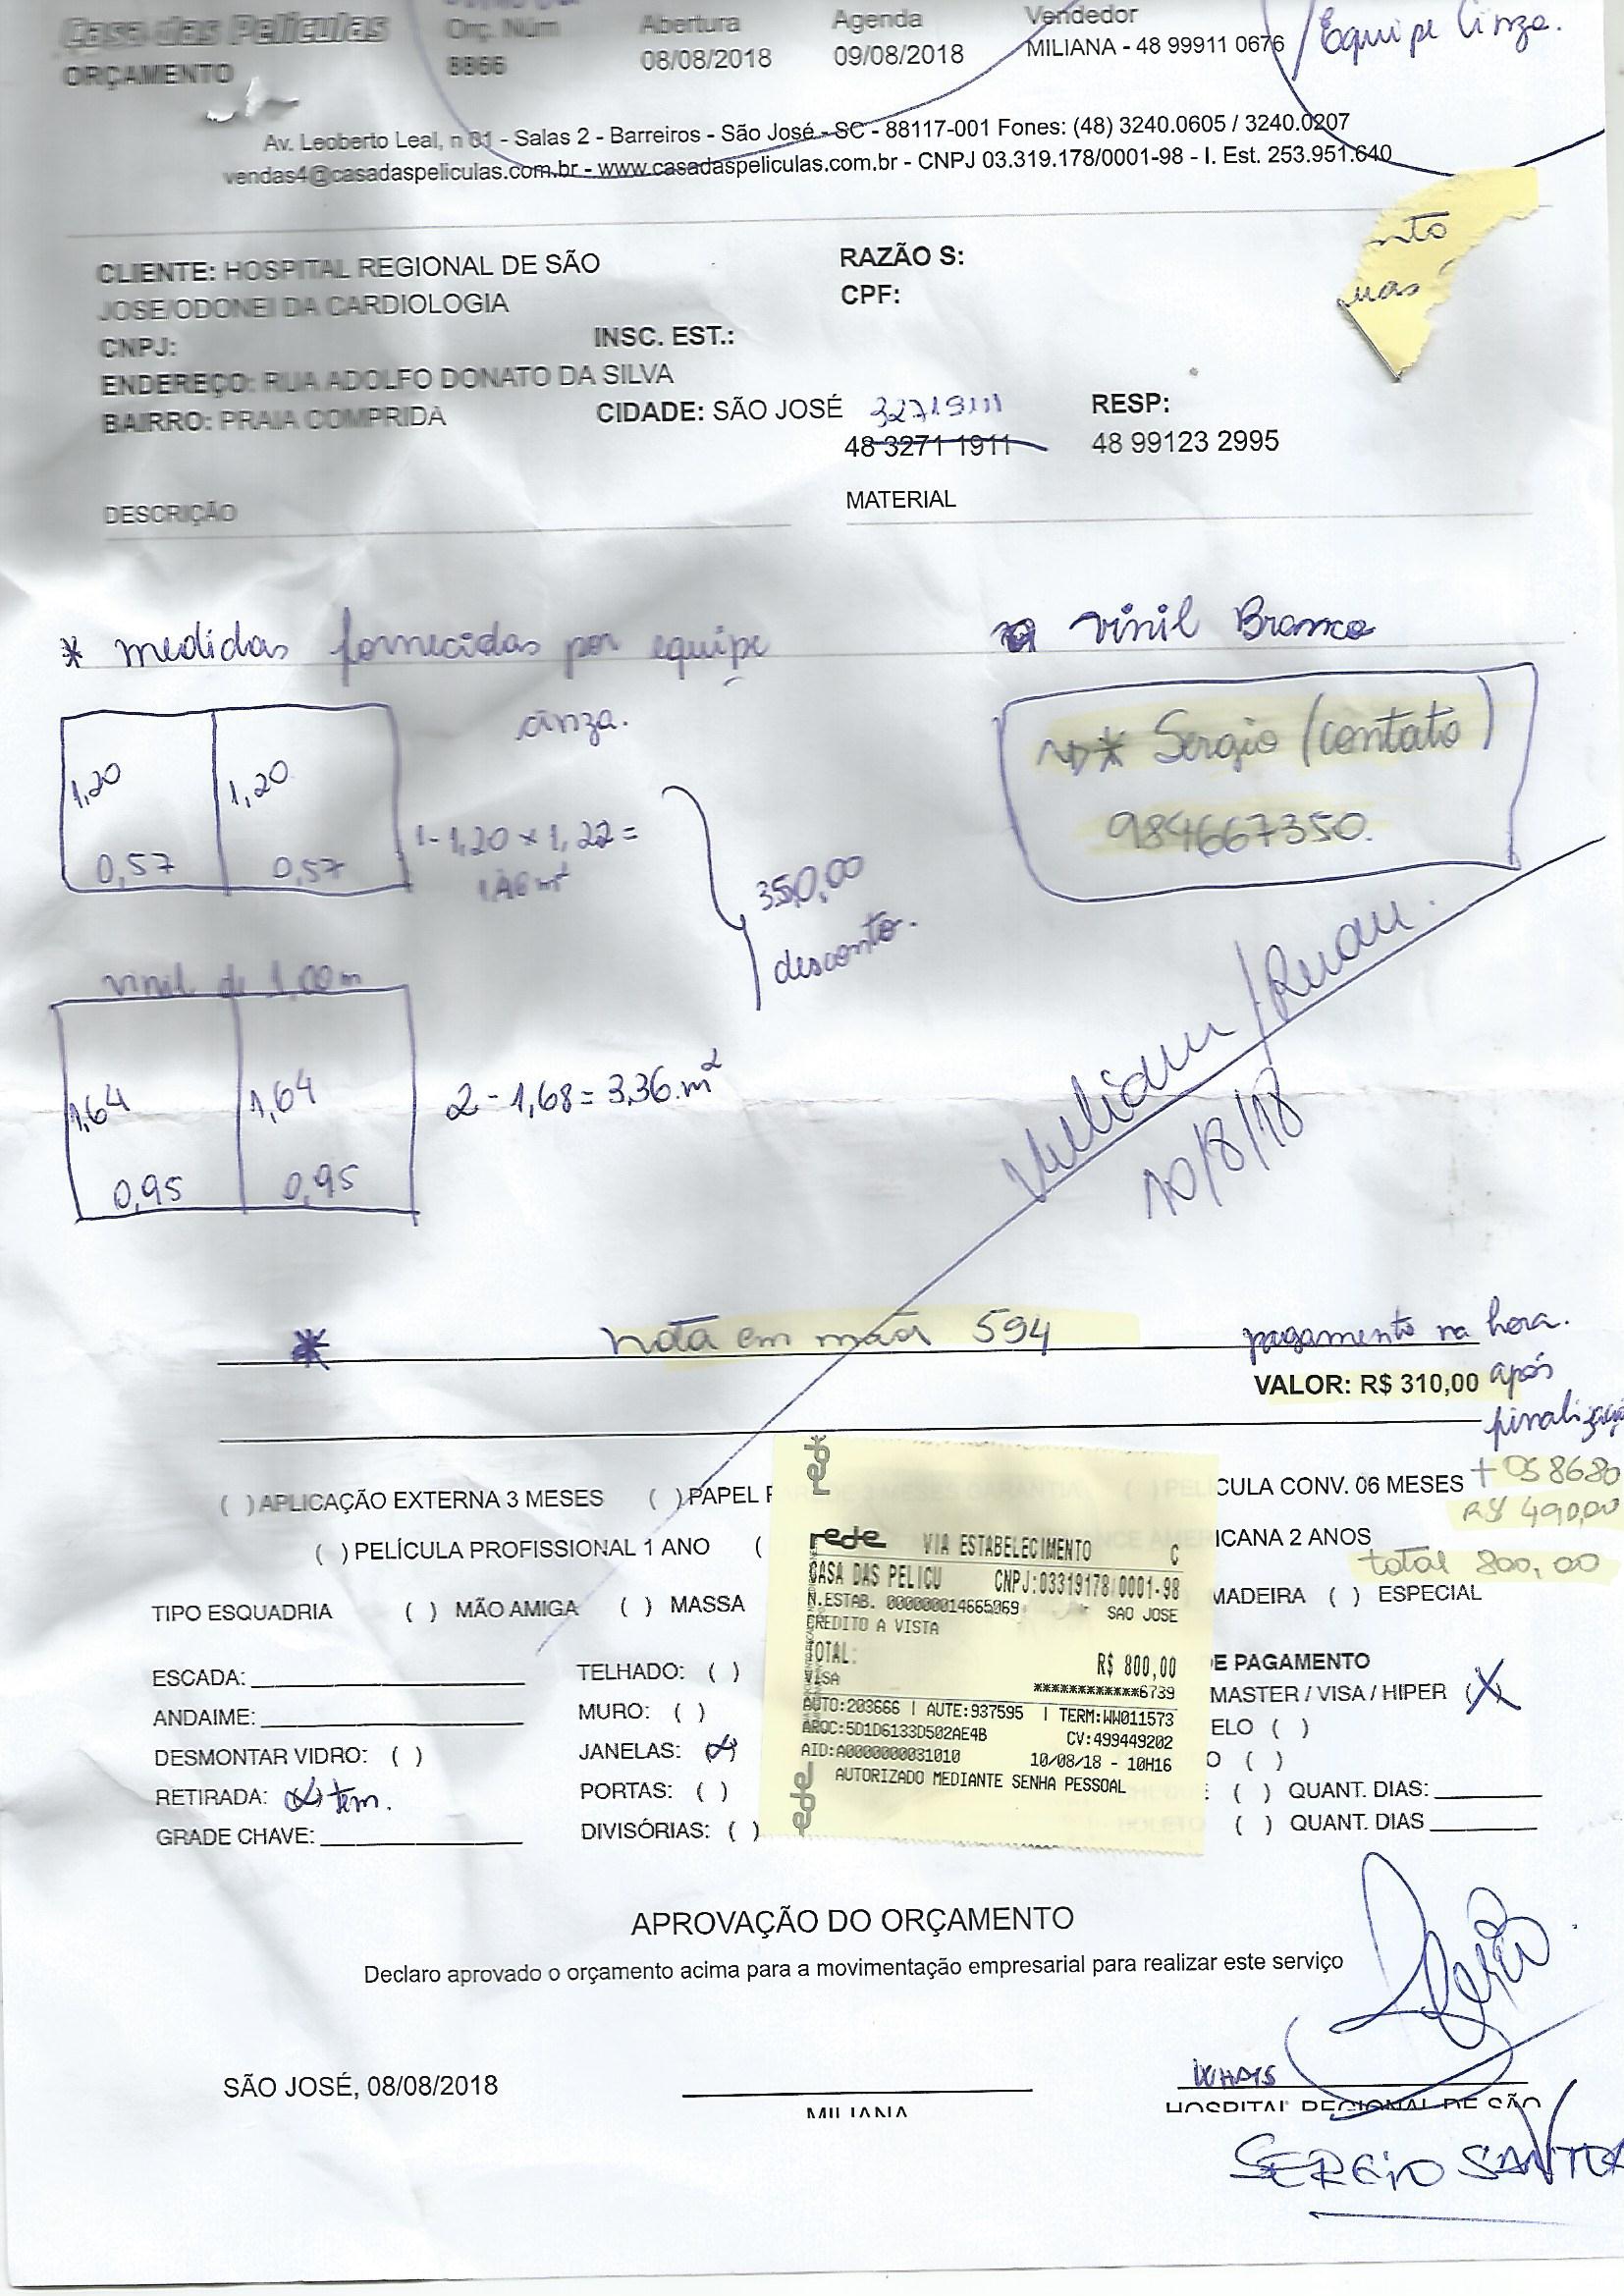 Casa das Películas
ORÇAMENTO
Orç. Núm
8866
Abertura
08/08/2018
Agenda
09/08/2018
Vendedor
MILIANA - 48 99911 0676
Equipe Cinza.
Av. Leoberto Leal, n 01 - Salas 2 - Barreiros - São José - SC - 88117-001 Fones: (48) 3240.0605 / 3240.0207
vendas4@casadaspeliculas.com.br - www.casadaspeliculas.com.br - CNPJ 03.319.178/0001-98 - I. Est. 253.951.640
nto
uas
CLIENTE: HOSPITAL REGIONAL DE SÃO
JOSE/ODONEI DA CARDIOLOGIA
RAZÃO S:
CPF:
CNPJ:
INSC. EST.:
ENDEREÇO: RUA ADOLFO DONATO DA SILVA
BAIRRO: PRAIA COMPRIDA
CIDADE: SÃO JOSÉ
32719111
48 3271 1911
RESP:
48 99123 2995
DESCRIÇÃO
MATERIAL
* medidas fornecidas por equipe
cinza.
vinil Branco
* Sergio (contato)
984667350.
1,20 1,20
0,57 0,57
1 - 1,20 x 1,22 =
1,46 m²
350,00
desconto.
vinil de 1,00m
1,64 1,64
0,95 0,95
2 - 1,68 = 3,36 m²
10/8/18
* nota em mãa 594
pagamento na hora.
após
finalizaçã
VALOR: R$ 310,00
+ OS 8680
R$ 490,00
total 800,00
( ) APLICAÇÃO EXTERNA 3 MESES ( ) PAPEL P
CULA CONV. 06 MESES
( ) PELÍCULA PROFISSIONAL 1 ANO (
ICANA 2 ANOS
TIPO ESQUADRIA ( ) MÃO AMIGA ( ) MASSA
MADEIRA ( ) ESPECIAL
rede
rede VIA ESTABELECIMENTO C
CASA DAS PELICU CNPJ:03319178/0001-98
N.ESTAB. 000000014665069 SAO JOSE
CREDITO A VISTA
TOTAL: R$ 800,00
VISA ************6739
AUTO:203666 | AUTE:937595 | TERM:WW011573
ARQC:5D1D6133D502AE4B CV:499449202
AID:A0000000031010 10/08/18 - 10H16
AUTORIZADO MEDIANTE SENHA PESSOAL
rede
ESCADA:
ANDAIME:
DESMONTAR VIDRO: ( )
RETIRADA: (x) tem.
GRADE CHAVE:
TELHADO: ( )
MURO: ( )
JANELAS: (x)
PORTAS: ( )
DIVISÓRIAS: ( )
E PAGAMENTO
MASTER / VISA / HIPER (X)
ELO ( )
O ( )
( ) QUANT. DIAS:
( ) QUANT. DIAS
APROVAÇÃO DO ORÇAMENTO
Declaro aprovado o orçamento acima para a movimentação empresarial para realizar este serviço
SÃO JOSÉ, 08/08/2018
MILIANA
WHATS
HOSPITAL REGIONAL DE SÃO
SERGIO SANTOS